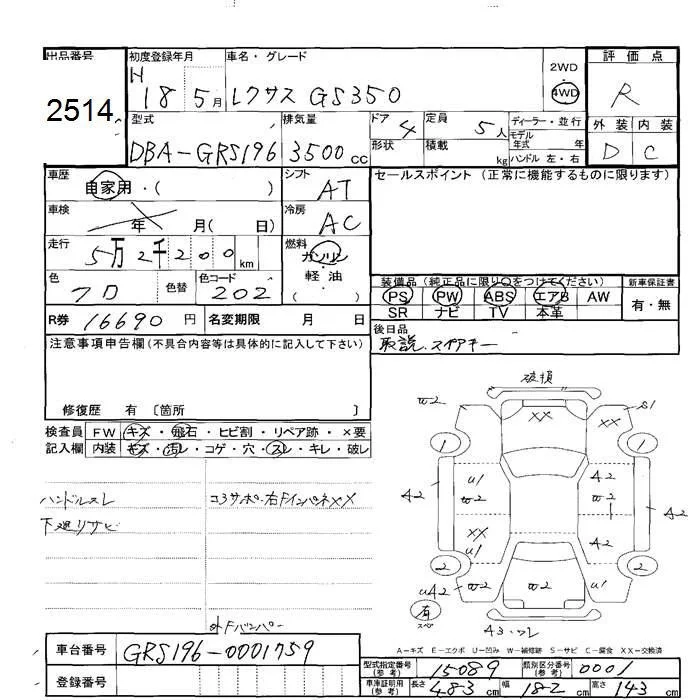 出品番号 初度登録年月 車名・グレード 2WD 評価点
2514 H 18 5月 レクサス GS350 4WD R
型式 排気量 ドア 4 定員 5人 ディーラー・並行 外装 内装
モデル年式 年
DBA-GRS196 3500cc 形状 積載 kg ハンドル 左・右 D C
車歴 自家用・( ) シフト AT セールスポイント (正常に機能するものに限ります)
車検 年 月( 日) 冷房 AC
走行 5万2千200km 燃料 ガソリン
軽・油
( )
色 クロ 色替 色コード 202
装備品 (純正品に限り○をつけてください) 新車保証書
PS PW ABS エアB AW 有・無
SR ナビ TV 本革
R券 16690円 名変期限 月 日
後日品
取説、スペアキー
注意事項申告欄(不具合内容等は具体的に記入して下さい)
修復歴 有 [箇所 ]
検査員 FW キズ・飛石・ヒビ割・リペア跡・×要
記入欄 内装 キズ・汚レ・コゲ・穴・スレ・キレ・破レ
ハンドルスレ コアサポ・右Fインパネ××
下廻リサビ
外Fバンパー
破損
W2 XX S1
1 1
A2 U1 W2 A2 W2 A2
XX U1 A2
2 2
UA2 W2 W2 U1
有
スペア
A3・ワレ
A-キズ E-エクボ U-凹み W-補修跡 S-サビ C-腐食 XX-交換済
車台番号 GRS196-0001759
登録番号
型式指定番号(参考) 15089 類別区分番号(参考) 0001
車庫証明用(参考) 長さ 483cm 幅 182cm 高さ 143cm